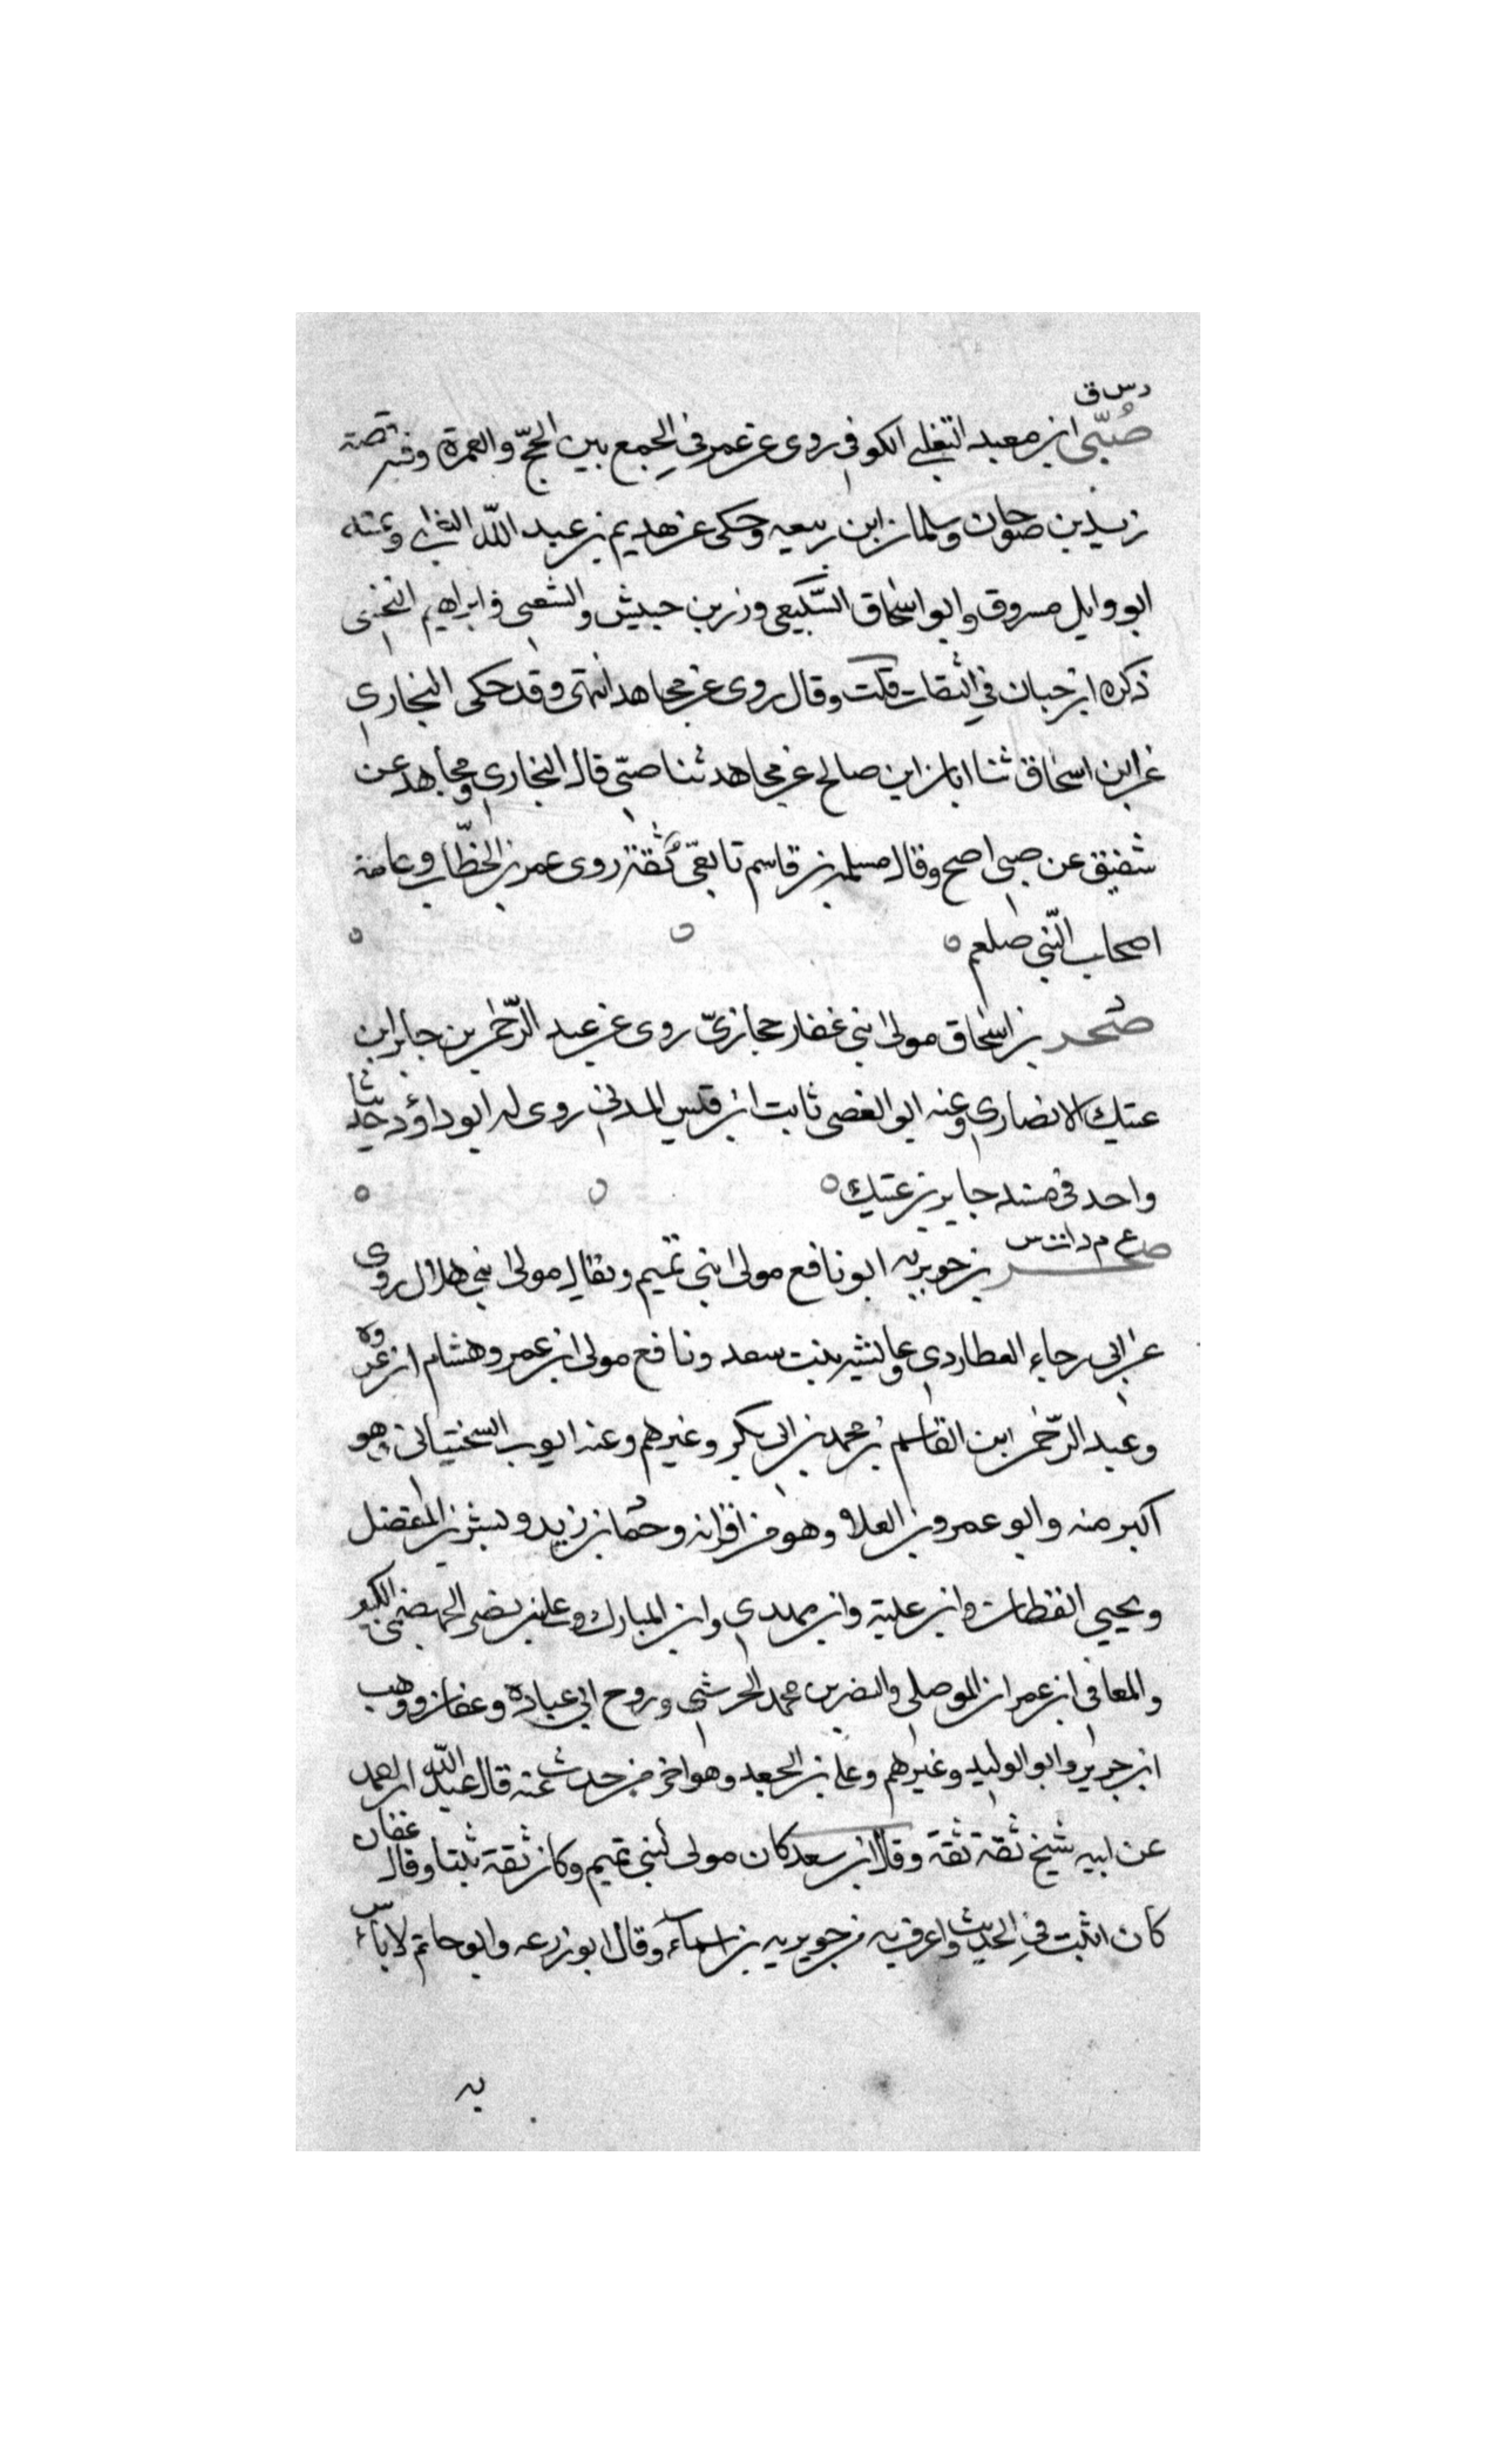 د س ق
صُبّى ابن معبد التغلبي الكوفي روى عن عمر في الجمع بين الحجّ والعمرة وفيه قصة
زيد بن صوحان وسلمان ابن ربيعه وحكى عن هديم بن عبد اللّه التغلبي وعنه
ابو وايل مسروق وابو اسحاق السّبيعي وزر بن حبيش والشعبى وابراهيم النخعى
ذكره ابن حبان في الثقات قلت وقال روى عن مجاهد انتهى وقد حكى البخاري
عن ابن اسحاق ثنا ابان ابن صالح عن مجاهد ثنا صبّى قال البخاري ومجاهد عن
شقيق عن صبى اصح وقال مسلمه بن قاسم تابعّي ثقة روى عمر بن الخطّاب وعامة
اصحاب النّبي صلعم ٥
صخر بن اسحاق مولى بني غفار حجازىّ روى عن عبد الرّحمن بن جابر ابن
عتيك الانصاري وعنه ابو الغصن ثابت ابن قيس المدني روى له ابو داؤد حديثا
واحد في مسند جابر بن عتيك ٥
خ م د ت س
صخر بن جويريه ابو نافع مولى بني تميم ويقال مولى بني هلال روى
عن ابي رجاء العطاردي وعايشه بنت سعد ونافع مولى ابن عمر وهشام ابن عروه
وعبد الرّحمن ابن القاسم بن محمد بن ابي بكر وغيرهم وعنه ايوب السختياني وهو
اكبر منه وابو عمرو بن العلاء وهو من اقرانه وحماد بن زيد وبشر بن المفضل
ويحيى القطان وابن علية وابن مهدي وابن المبارك وعلي بن نصر الجهضمى الكبير
والمعافى ابن عمران الموصلي والنضر بن محمد الجرشي وروح ابن عبادة وعفان ووهب
ابن جرير وابو الوليد وغيرهم وعلي بن الجعد وهو اخر من حدث عنه قال عبد اللّه ابن احمد
عن ابيه شيخ ثقة ثقة وقال ابن سعد كان مولى لبني تميم وكان ثقة ثبتا وقال عفان
كان اثبت في الحديث واعرف به من جويريه بن اسماء وقال ابو زرعه وابو حاتم لا بأس
به